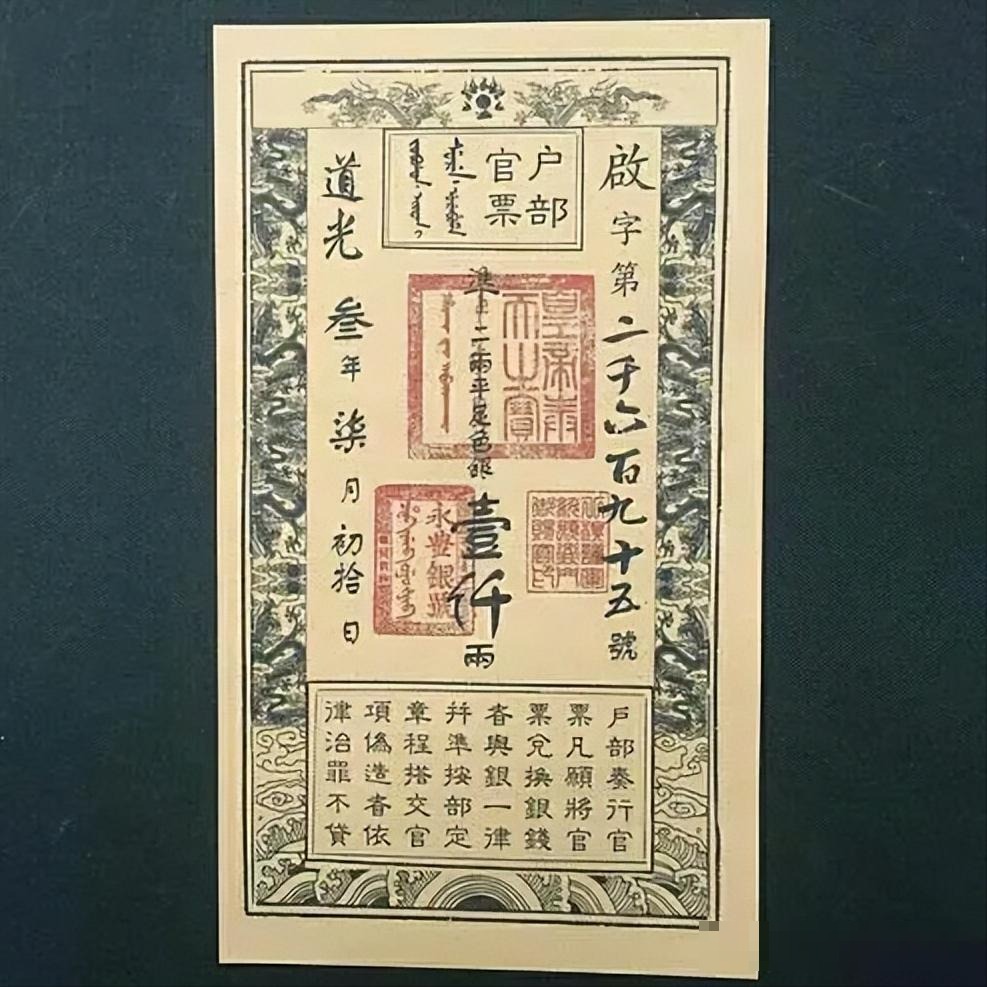 户部
官票
啟字第二千六百九十五號
準二兩平足色銀壹仟兩
皇帝奉
天之寶
永豐銀號
道光叁年柒月初拾日
戶部奏行官
票凡願將官
票兌換銀錢
者與銀一律
幷準按部定
章程搭交官
項偽造者依
律治罪不貸